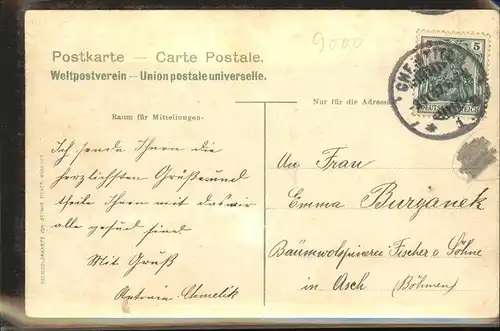 9000
Postkarte — Carte Postale.
Weltpostverein — Union postale universelle.
Raum für Mitteilungen.
Nur für die Adresse
5
DEUTSCHES REICH
CHEMNITZ
1
Ich sende Ihnen die
herzlichsten Grüße und
theile Ihnen mit das wir
alle gesund sind
Mit Gruß
Antonie Chmelik
An Frau
Emma Buryanek
Baumwolspinerei Fischer u Söhne
in Asch (Böhmen)